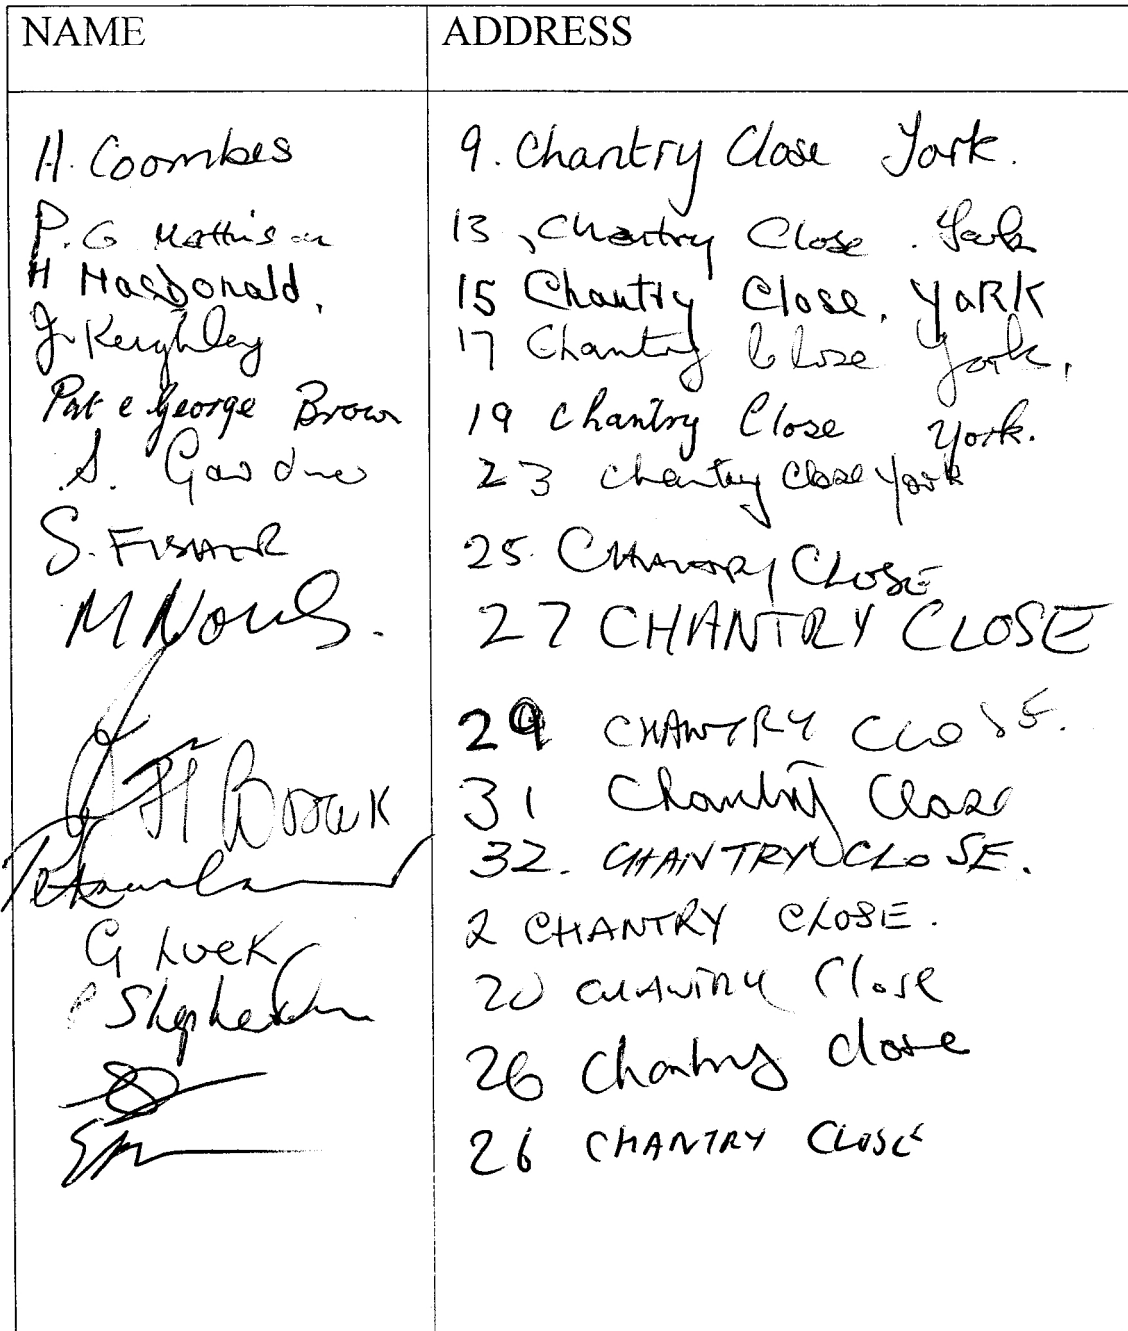 NAME ADDRESS
H. Coombes 9. Chantry Close York.
P. G Mattison 13, Chantry Close. York
H MacDonald, 15 Chantry Close, YORK
J. Keighley 17 Chantry Close York,
Pat & George Brown 19 Chantry Close York.
S. Gardner 23 Chantry Close York
S. FISHER 25. CHANTRY CLOSE
M 27 CHANTRY CLOSE
29 CHANTRY CLOSE.
31 Chantry Close
32. CHANTRY CLOSE.
G Luck 2 CHANTRY CLOSE.
20 CHANTRY Close
26 Chantry Close
26 CHANTRY CLOSE